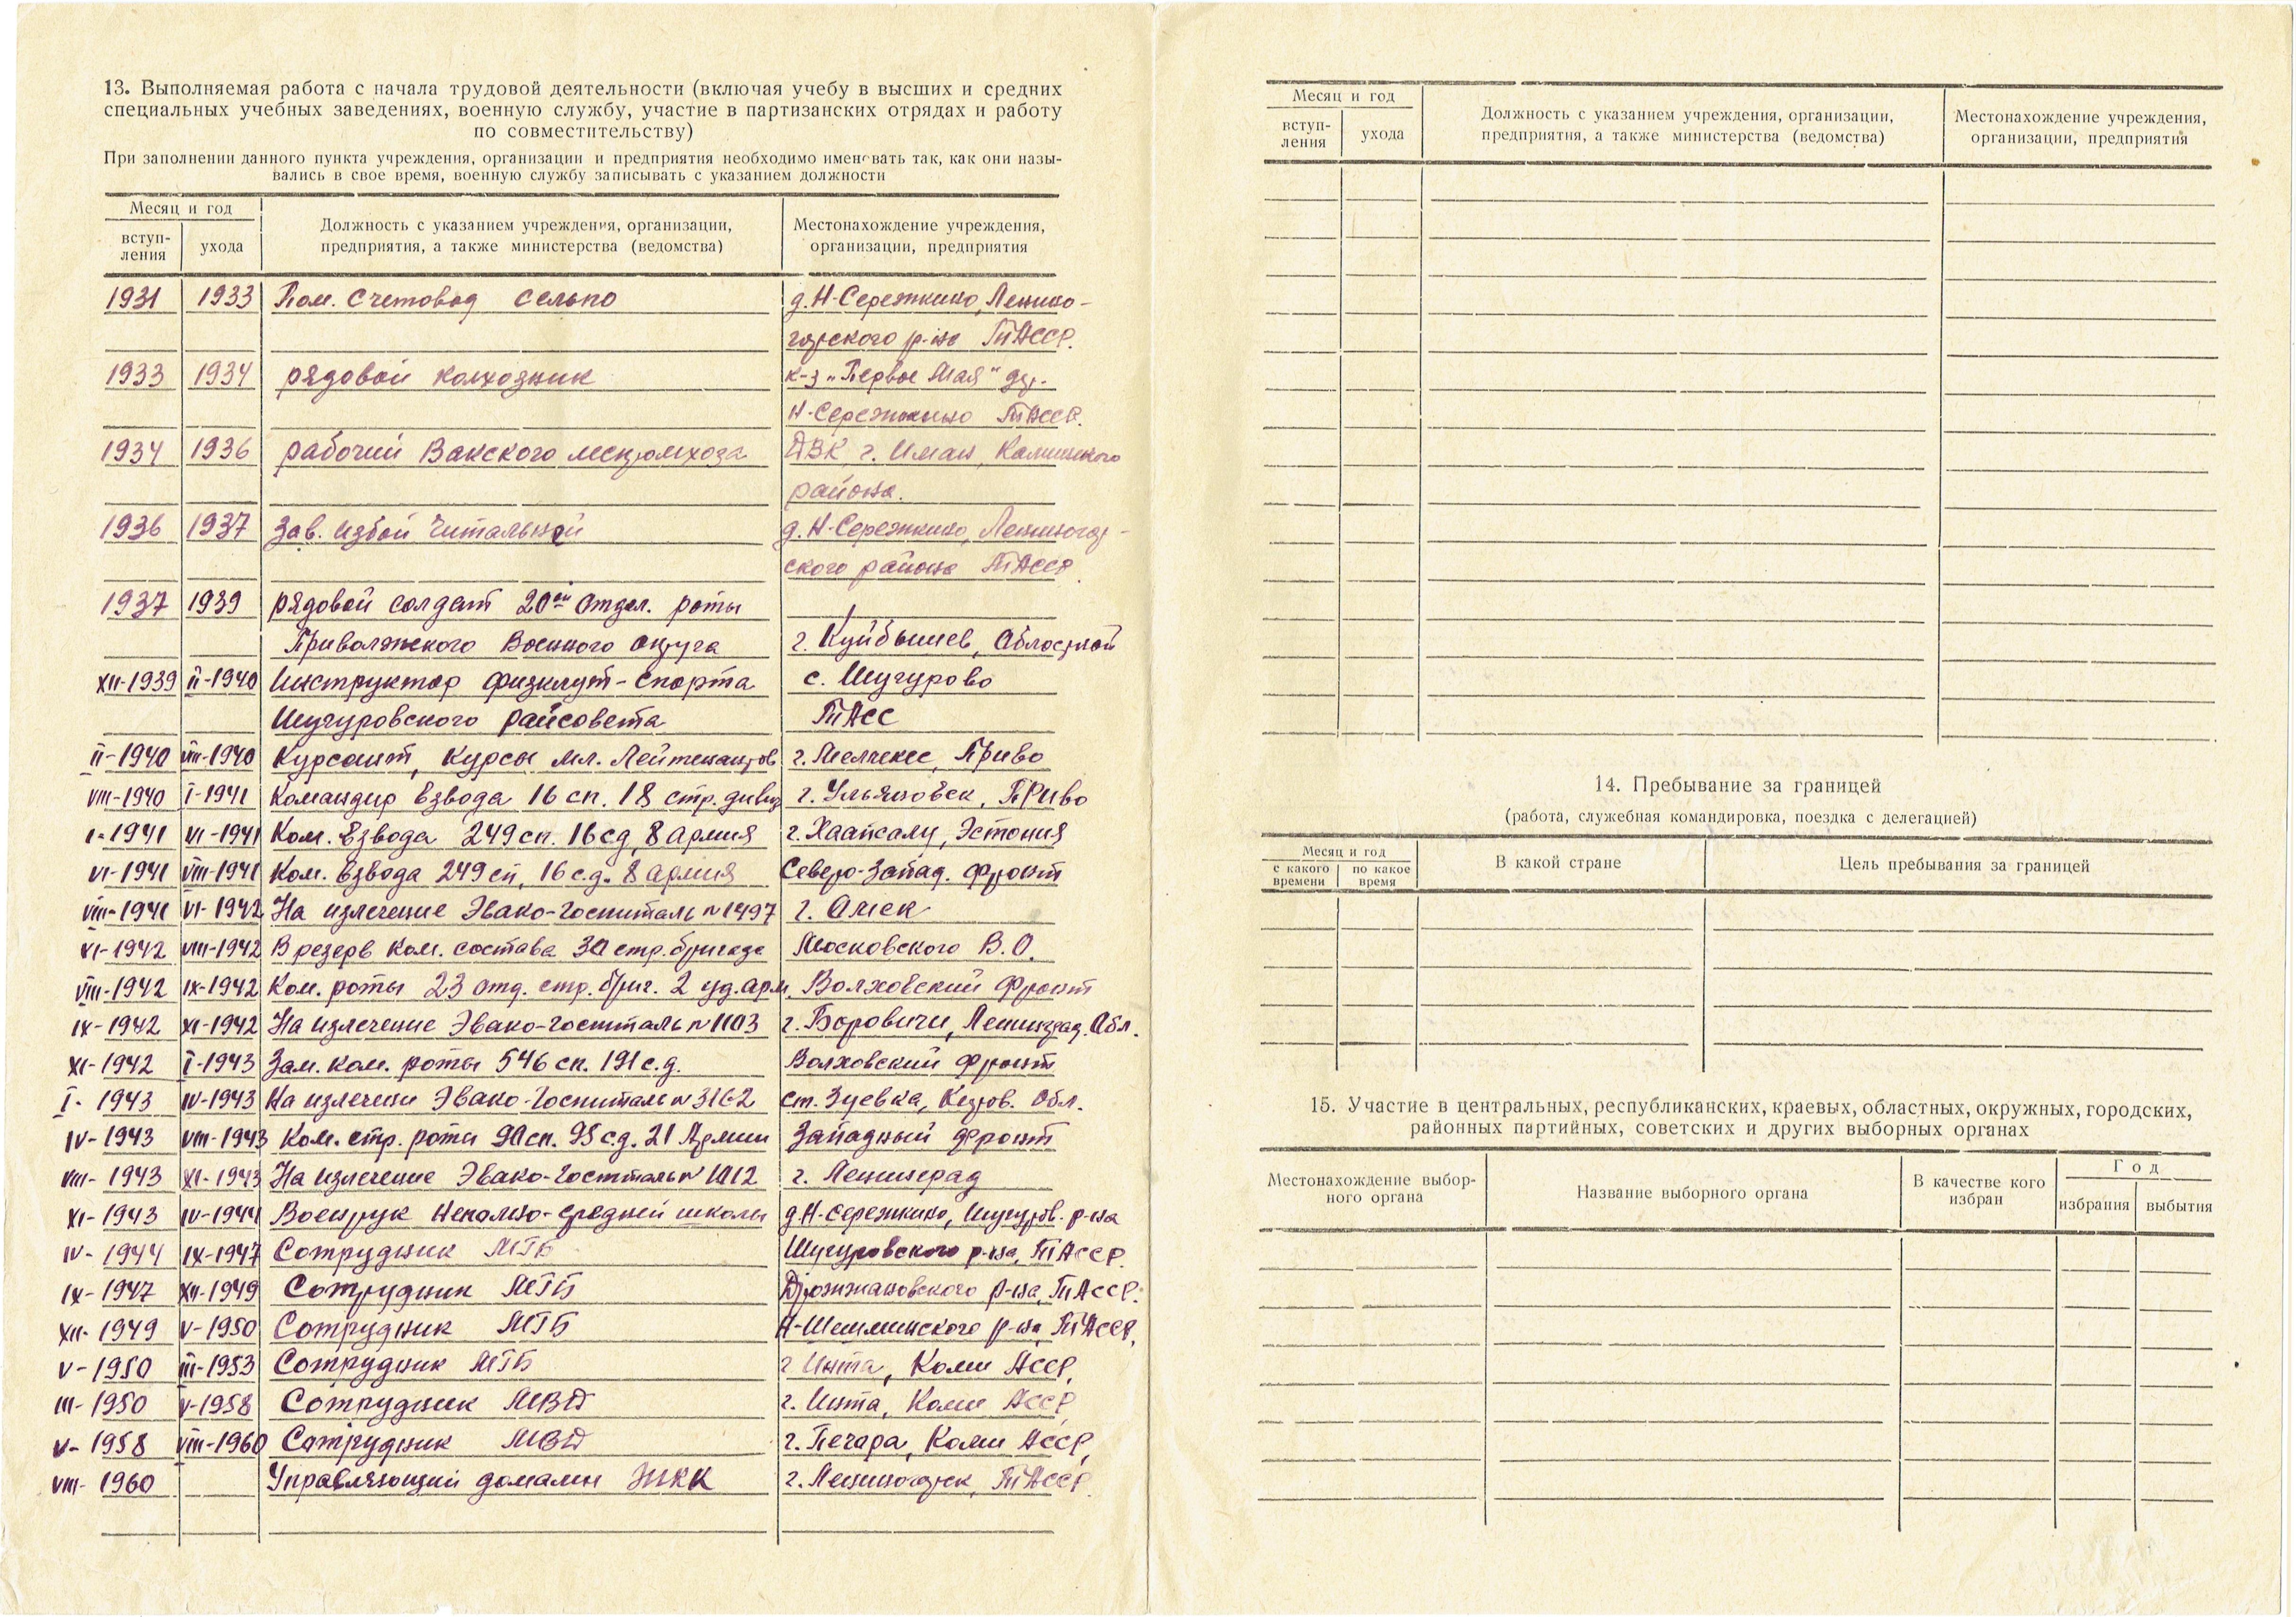 13. Выполняемая работа с начала трудовой деятельности (включая учебу в высших и средних
специальных учебных заведениях, военную службу, участие в партизанских отрядах и работу
по совместительству)
При заполнении данного пункта учреждения, организации и предприятия необходимо именовать так, как они назы-
вались в свое время, военную службу записывать с указанием должности
Месяц и год
вступ-
ления
ухода
Должность с указанием учреждения, организации,
предприятия, а также министерства (ведомства)
Местонахождение учреждения,
организации, предприятия
1931 1933 Пом. счетовод сельпо д. Н-Сережкино, Ленино-
горского р-на ТАССР.
1933 1934 рядовой колхозник к-з „Первое Мая" др.
Н-Сережкино ТАССР.
1934 1936 рабочий Вакского леспромхоза ДВК, г. Иман, Калининского
района.
1936 1937 Зав. избой читальной д. Н-Сережкино, Лениногор-
ского района ТАССР
1937 1939 рядовой солдат 20ой отдел. роты
Приволжского Военного округа г. Куйбышев, Областной
XII-1939 II-1940 Инструктор физкульт-спорта с. Шугурово
Шугуровского райсовета ТАСС
II-1940 VIII-1940 Курсант, курсы мл. Лейтенантов г. Мелекес, ПриВо
VIII-1940 I-1941 Командир взвода 16 сп. 18 стр. дивиз г. Ульяновск, ПРиВо
I-1941 VI-1941 Ком. взвода 249 сп. 16 сд, 8 армия г. Хаапсалу, Эстония
VI-1941 VIII-1941 Ком. взвода 249 сп, 16 с.д. 8 армия Северо-Запад. фронт
VIII-1941 VI-1942 На излечение Эвако-госпиталь №1497 г. Омск
VI-1942 VIII-1942 В резерв ком. состава 30 стр. бригада Московского В.О.
VIII-1942 IX-1942 Ком. роты 23 отд. стр. бриг. 2 уд. арм. Волховский фронт
IX-1942 XI-1942 На излечение Эвако-госпиталь №1103 г. Боровичи, Ленинград. Обл.
XI-1942 I-1943 Зам. ком. роты 546 сп. 191 с.д. Волховский фронт
I-1943 IV-1943 На излечени Эвако-госпиталь №3162 ст. Зуевка, Киров. обл.
IV-1943 VIII-1943 Ком. стр. роты 90 сп. 95 с.д. 21 Армии Западный фронт
VIII-1943 XI-1943 На излечение Эвако-госпиталь №1012 г. Ленинград
XI-1943 IV-1944 Военрук неполно-средней школы д. Н-Сережкино, Шугуров. р-на
IV-1944 IX-1947 Сотрудник МГБ Шугуровского р-на, ТАССР.
IX-1947 XII-1949 Сотрудник МГБ Дрожжановского р-на, ТАССР.
XII-1949 V-1950 Сотрудник МГБ Н-Шешминского р-на, ТАССР,
V-1950 III-1953 Сотрудник МГБ г Инта, Коми АССР,
III-1950 V-1958 Сотрудник МВД г. Инта, Коми АССР
V-1958 VIII-1960 Сотрудник МВД г. Печора, Коми АССР,
VIII-1960 Управляющий домами ЖКК г. Лениногорск, ТАССР.
Месяц и год
вступ-
ления
ухода
Должность с указанием учреждения, организации,
предприятия, а также министерства (ведомства)
Местонахождение учреждения,
организации, предприятия
14. Пребывание за границей
(работа, служебная командировка, поездка с делегацией)
Месяц и год
с какого
времени
по какое
время
В какой стране
Цель пребывания за границей
15. Участие в центральных, республиканских, краевых, областных, окружных, городских,
районных партийных, советских и других выборных органах
Местонахождение выбор-
ного органа
Название выборного органа
В качестве кого
избран
Год
избрания
выбытия